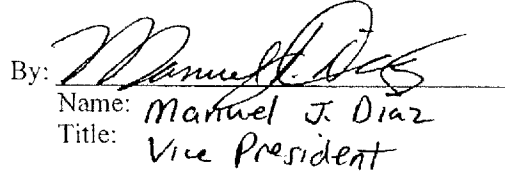 By: Manuel J. Diaz
Name: Manuel J. Diaz
Title: Vice President